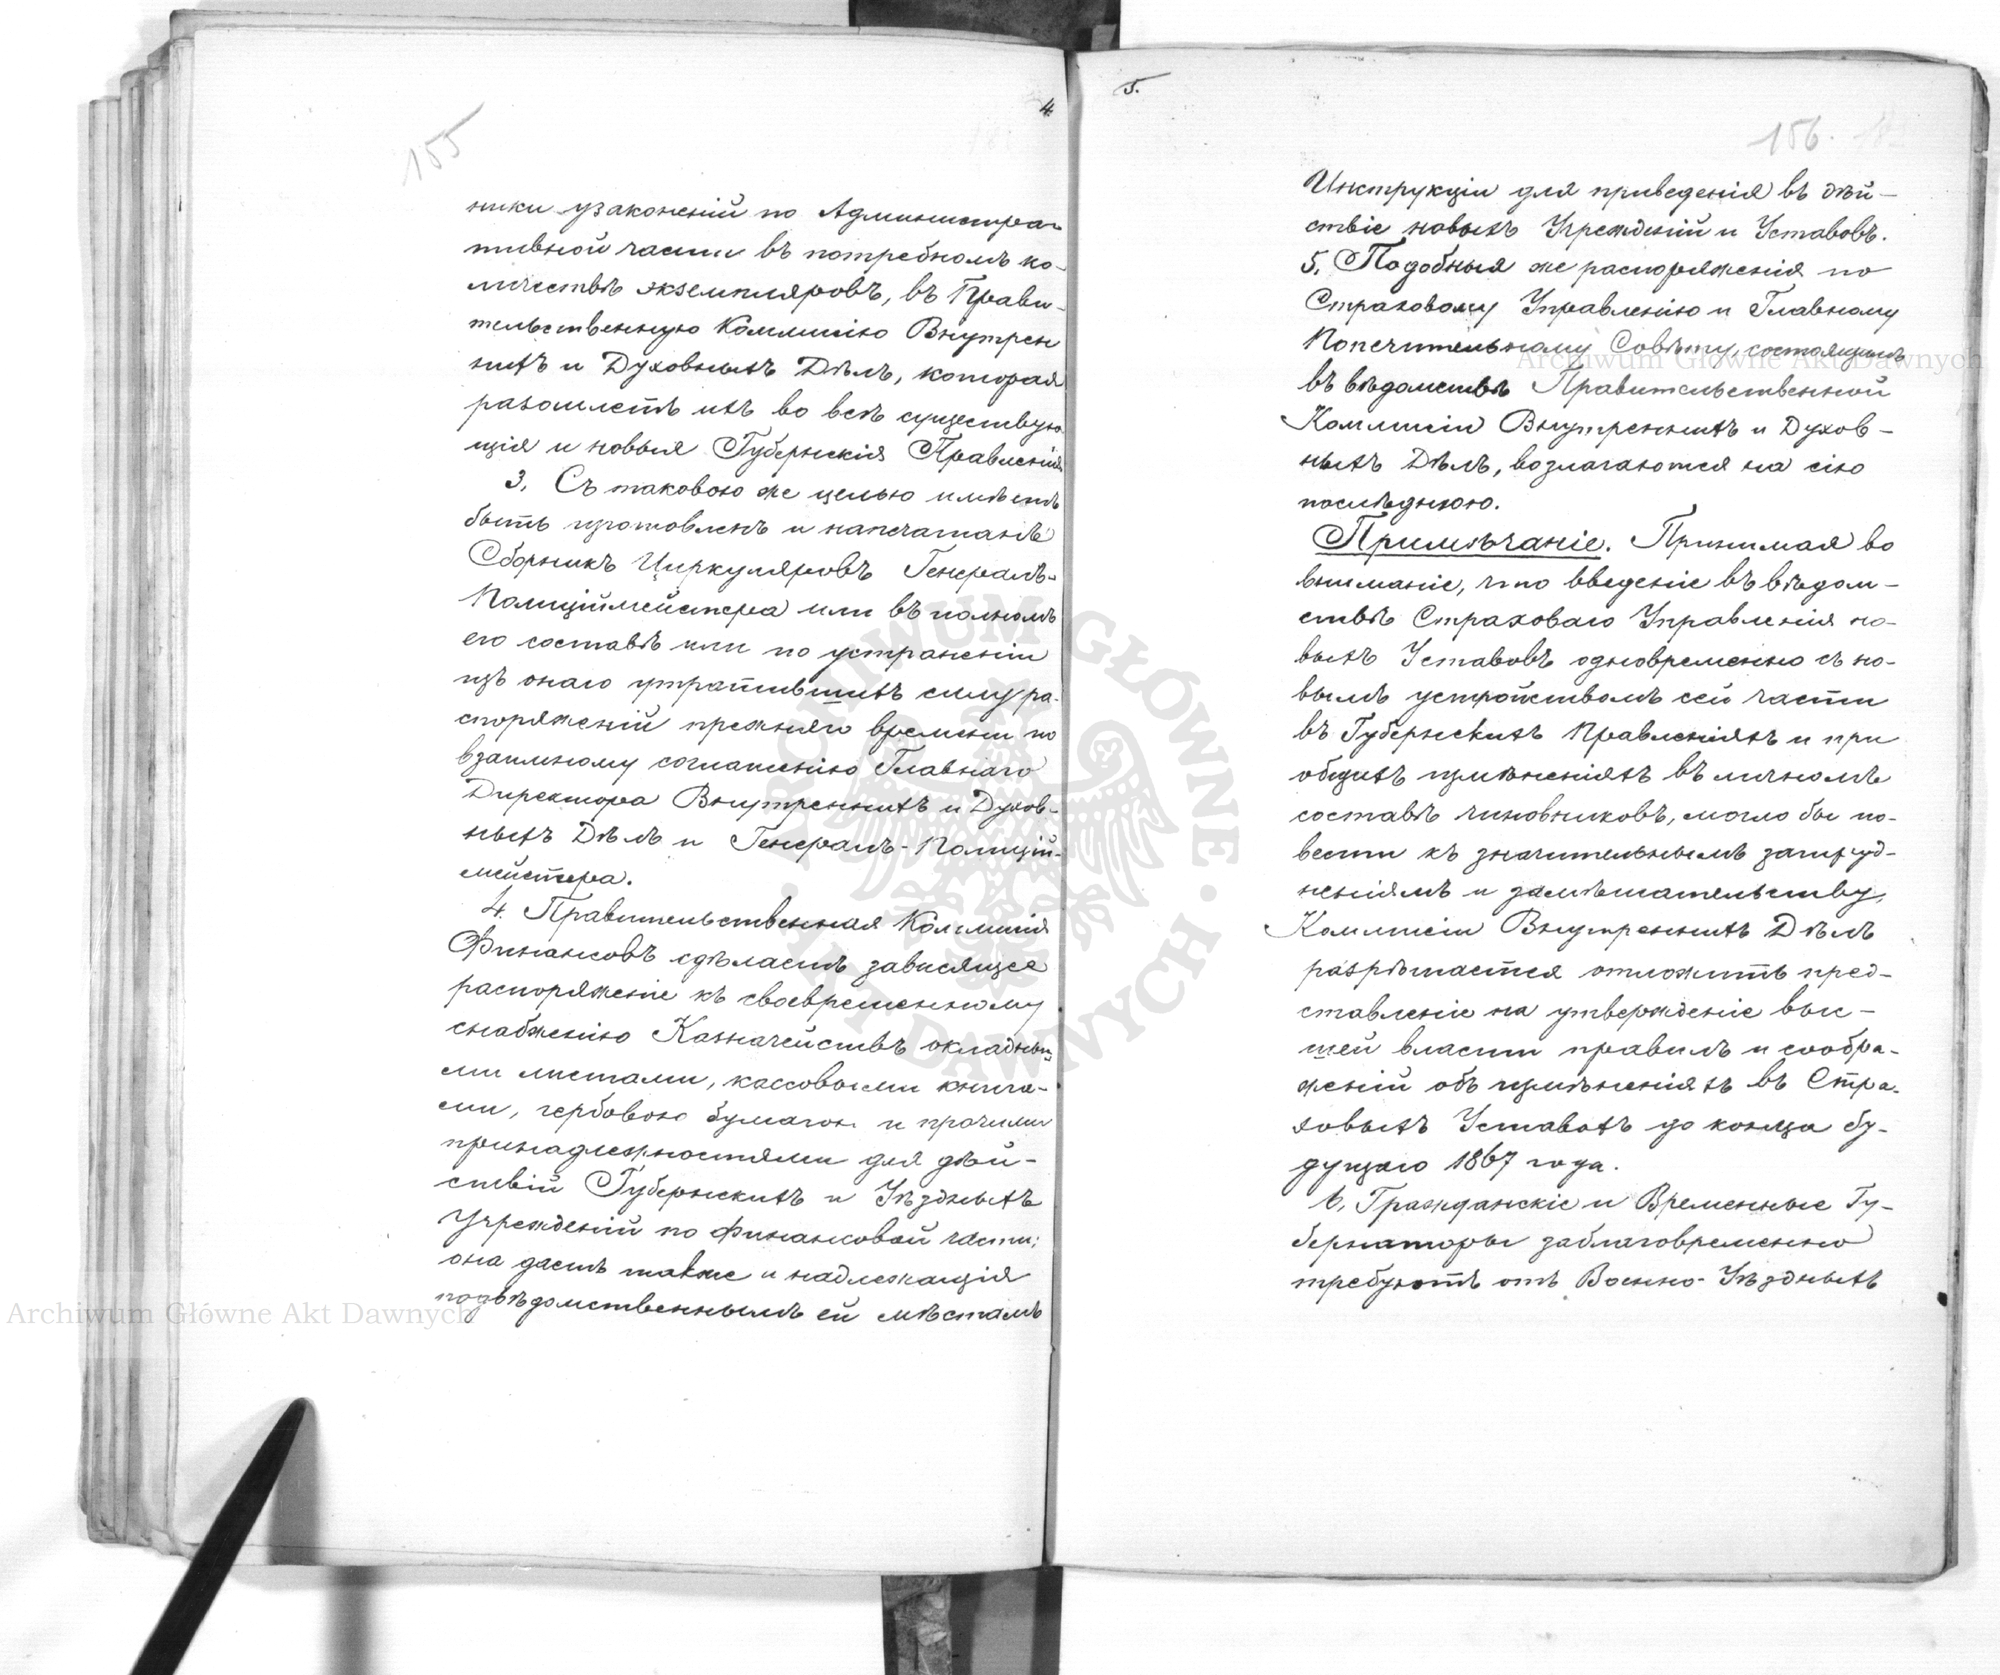 4
155
ники узаконеній по Администра-
тивной части въ потребномъ ко-
личествѣ экземпляровъ, въ Прави-
тельственную Коммисію Внутрен
нихъ и Духовныхъ Дѣлъ, которая
разошлетъ ихъ во всѣ существую-
щія и новыя Губернскія Правленія
3. Съ таковою же целью имѣетъ
быть изготовленъ и напечатанъ
Сборникъ Циркуляровъ Генералъ-
Полиціймейстера или въ полномъ
его составѣ или по устраненіи
изъ онаго утратившихъ силу ра-
споряженій прежняго времени по
взаимному соглашенію Главнаго
Директора Внутреннихъ и Духов-
ныхъ Дѣлъ и Генералъ-Полицій-
мейстера.
4. Правительственная Коммисія
Финансовъ сдѣлаетъ зависящее
распоряженіе къ своевременному
снабженію Казначействъ окладны-
ми листами, кассовыми книга-
ми, гербовою бумагою и прочими
принадлежностями для дѣй-
ствій Губернскихъ и Уѣздныхъ
Учрежденій по Финансовой части;
она дастъ также и надлежащія
подвѣдомственнымъ ей мѣстамъ
5.
156.
Инструкціи для приведенія въ дѣй-
ствіе новыхъ Учрежденій и Уставовъ.
5. Подобныя же распоряженія по
Страховому Управленію и Главному
Попечительному Совѣту, состоящимъ
въ вѣдомствѣ Правительственной
Коммисіи Внутреннихъ и Духов-
ныхъ Дѣлъ, возлагаются на сію
послѣднюю.
Примѣчаніе. Принимая во
вниманіе, что введеніе въ вѣдом-
ствѣ Страховаго Управленія но-
выхъ Уставовъ одновременно съ но-
вымъ устройствомъ сей части
въ Губернскихъ Правленіяхъ и при
общихъ измѣненіяхъ въ личномъ
составѣ чиновниковъ, могло бы по-
вести къ значительнымъ затруд-
неніямъ и замѣшательству,
Коммисіи Внутреннихъ Дѣлъ
разрѣшается отложить пред-
ставленіе на утвержденіе выс-
шей власти правилъ и сообра-
женій объ измѣненіяхъ въ Стра-
ховыхъ Уставахъ до конца бу-
дущаго 1867 года.
6. Гражданскіе и Временные Гу-
бернаторы заблаговременно
требуютъ отъ Военно-Уѣздныхъ
Archiwum Główne Akt Dawnych
Archiwum Główne Akt Dawnych
ARCHIWUM GŁÓWNE AKT DAWNYCH